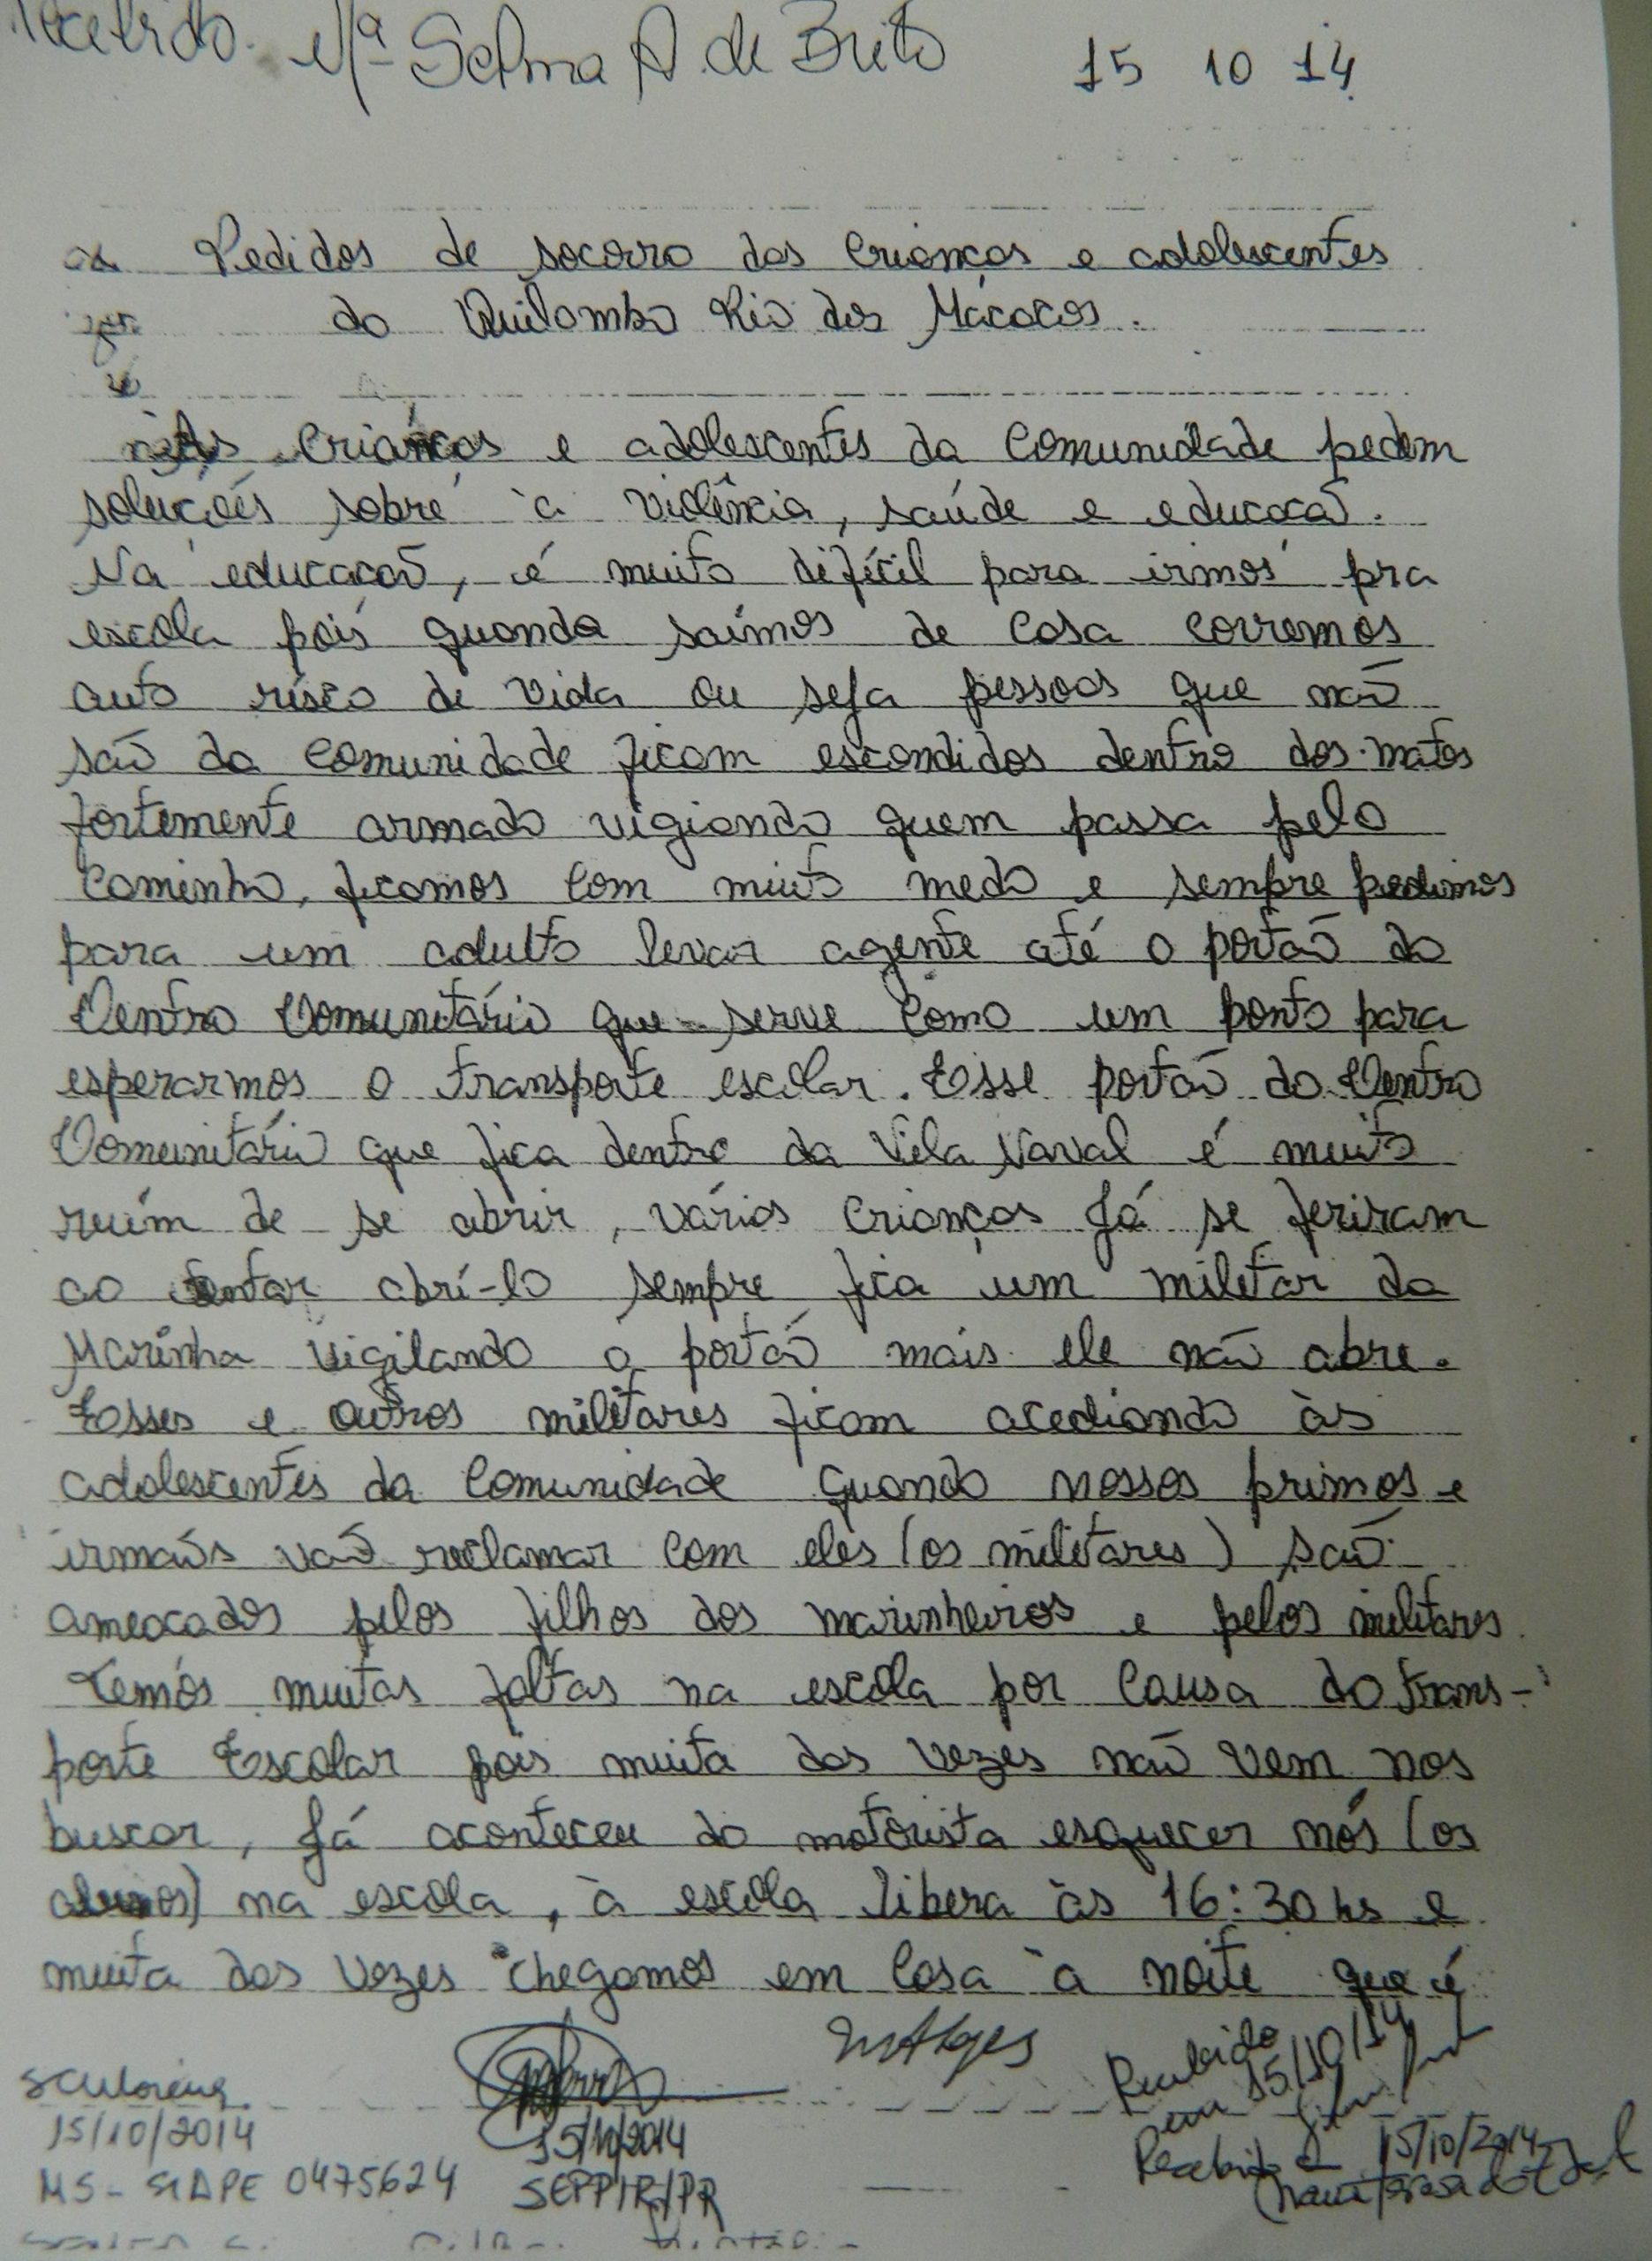 Recebido. Mª Selma A. de Brito 15 10 14
Pedidos de socorro das Crianças e adolescentes
do Quilombo Rio dos Macacos.
As crianças e adolescentes da Comunidade pedem
soluções sobre à violência, saúde e educação.
Na educação, é muito difícil para irmos pra
escola pois quando saímos de Casa corremos
auto risco de vida ou seja pessoas que não
são da Comunidade ficam escondidos dentro dos matos
fortemente armado vigiando quem passa pelo
Caminho, ficamos Com muito medo e sempre pedimos
para um adulto levar agente até o portão do
Centro Comunitário que serve Como um ponto para
esperarmos o transporte escolar. Esse portão do Centro
Comunitário que fica dentro da Vila Naval é muito
ruím de se abrir, várias crianças Já se feriram
ao tentar abrí-lo sempre fica um militar da
Marinha vigilando o portão mais ele não abre.
Esses e outros militares ficam acediando às
adolescentes da Comunidade quando nossos primos e
irmãos vão reclamar Com eles (os militares) são
ameaçados pelos filhos dos marinheiros e pelos militares.
Temos muitas faltas na escola por Causa do trans-
porte Escolar pois muita das vezes não vem nos
buscar, Já aconteceu do motorista esquecer nós (os
alunos) na escola, à escola libera às 16:30 hs e
muita das vezes chegamos em Casa à noite que é
Recebido
em 15/10/14
15/10/2014
15/10/2014
MS - SIAPE 0475624
SEPPIR/PR
Recebido 15/10/2014